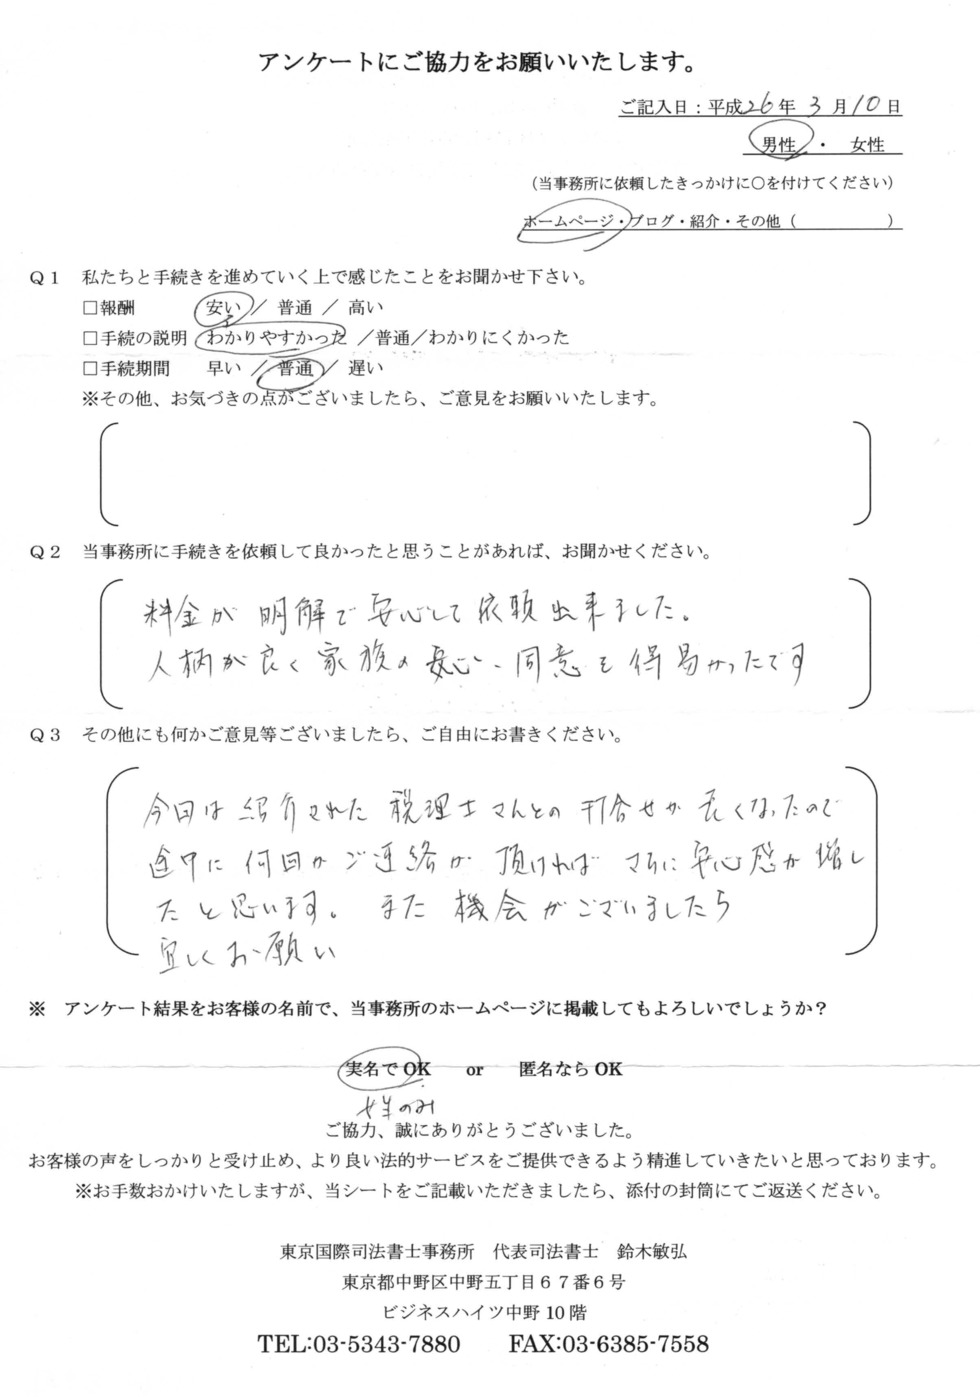 アンケートにご協力をお願いいたします。
ご記入日：平成26年 3月10日
男性 ・ 女性
（当事務所に依頼したきっかけに○を付けてください）
ホームページ・ブログ・紹介・その他（　　　　　　）
Ｑ１　私たちと手続きを進めていく上で感じたことをお聞かせ下さい。
□報酬　安い ／ 普通 ／ 高い
□手続の説明　わかりやすかった ／普通／わかりにくかった
□手続期間　早い ／ 普通 ／ 遅い
※その他、お気づきの点がございましたら、ご意見をお願いいたします。
Ｑ２　当事務所に手続きを依頼して良かったと思うことがあれば、お聞かせください。
料金が明解で安心して依頼出来ました。
人柄が良く家族の安心、同意も得易かったです
Ｑ３　その他にも何かご意見等ございましたら、ご自由にお書きください。
今回は紹介された税理士さんとの打合せが長くなったので
途中に何回かご連絡が頂ければさらに安心感が増し
たと思います。また機会がございましたら
宜しくお願い
※　アンケート結果をお客様の名前で、当事務所のホームページに掲載してもよろしいでしょうか？
実名でOK　or　匿名ならOK
姓のみ
ご協力、誠にありがとうございました。
お客様の声をしっかりと受け止め、より良い法的サービスをご提供できるよう精進していきたいと思っております。
※お手数おかけいたしますが、当シートをご記載いただきましたら、添付の封筒にてご返送ください。
東京国際司法書士事務所　代表司法書士　鈴木敏弘
東京都中野区中野五丁目６７番６号
ビジネスハイツ中野 10 階
TEL:03-5343-7880　FAX:03-6385-7558